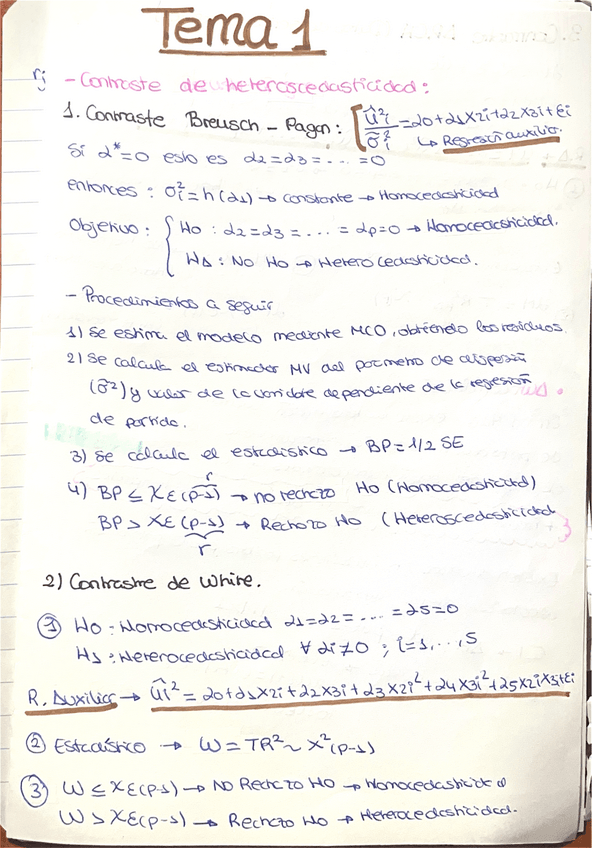 Tema 1
- Contraste de heteroscedasticidad:
1. Contraste Breusch - Pagan: [ û²i / σ̃²i = α0+α1X2i+α2X3i+εi
↳ Regresión auxiliar.
Si α*=0 esto es α2=α3=....=0
entonces: σi²=h(α1) → constante → Homocedasticidad
Objetivo: { H0: α2=α3=....=αp=0 → Homocedasticidad.
HA: NO H0 → Heterocedasticidad.
- Procedimientos a seguir
1) Se estima el modelo mediante MCO, obteniendo los residuos.
2) Se calcula el estimador MV del parmetro de dispersión
(σ̃²) y valor de la variable dependiente de la regresión
de partida.
3) Se calcula el estadistico → BP=1/2 SE
r
4) BP ≤ χε(p-1) → no rechazo H0 (Homocedasticidad)
BP > χε(p-1) → Rechazo H0 (Heteroscedasticidad
r
2) Contraste de White.
① H0: Homocedasticidad α1=α2=....=α5=0
H1: Heterocedasticidad ∀ αi≠0; i=1,...,5
R. Auxiliar → ûi²=α0+α1X2i+α2X3i+α3X2i²+α4X3i²+α5X2iX3i+εi
② Estadístico → W=TR²~χ²(p-1)
③ W ≤ χε(p-1) → NO Rechazo H0 → Homocedasticidad
W > χε(p-1) → Rechazo H0 → Heterocedasticidad.